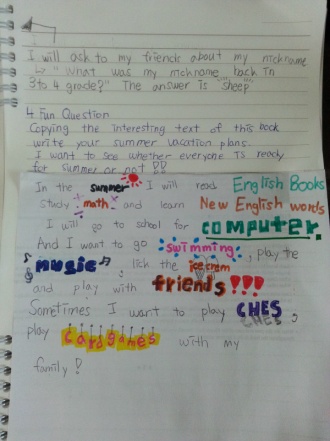 I will ask to my friends about my nickname
↳ "What was my nickname back in
3 to 4 grade?" The answer is "sheep"
4. Fun Question
Copying the interesting text of this book
write your summer vacation plans.
I want to see whether everyone is ready
for summer or not!!
In the summer I will read English Books
study math and learn New English words
I will go to school for computer.
And I want to go swimming, play the
music, lick the icecream
and play with friends!!!
Sometimes I want to play CHES,
play cardgames with my
family!